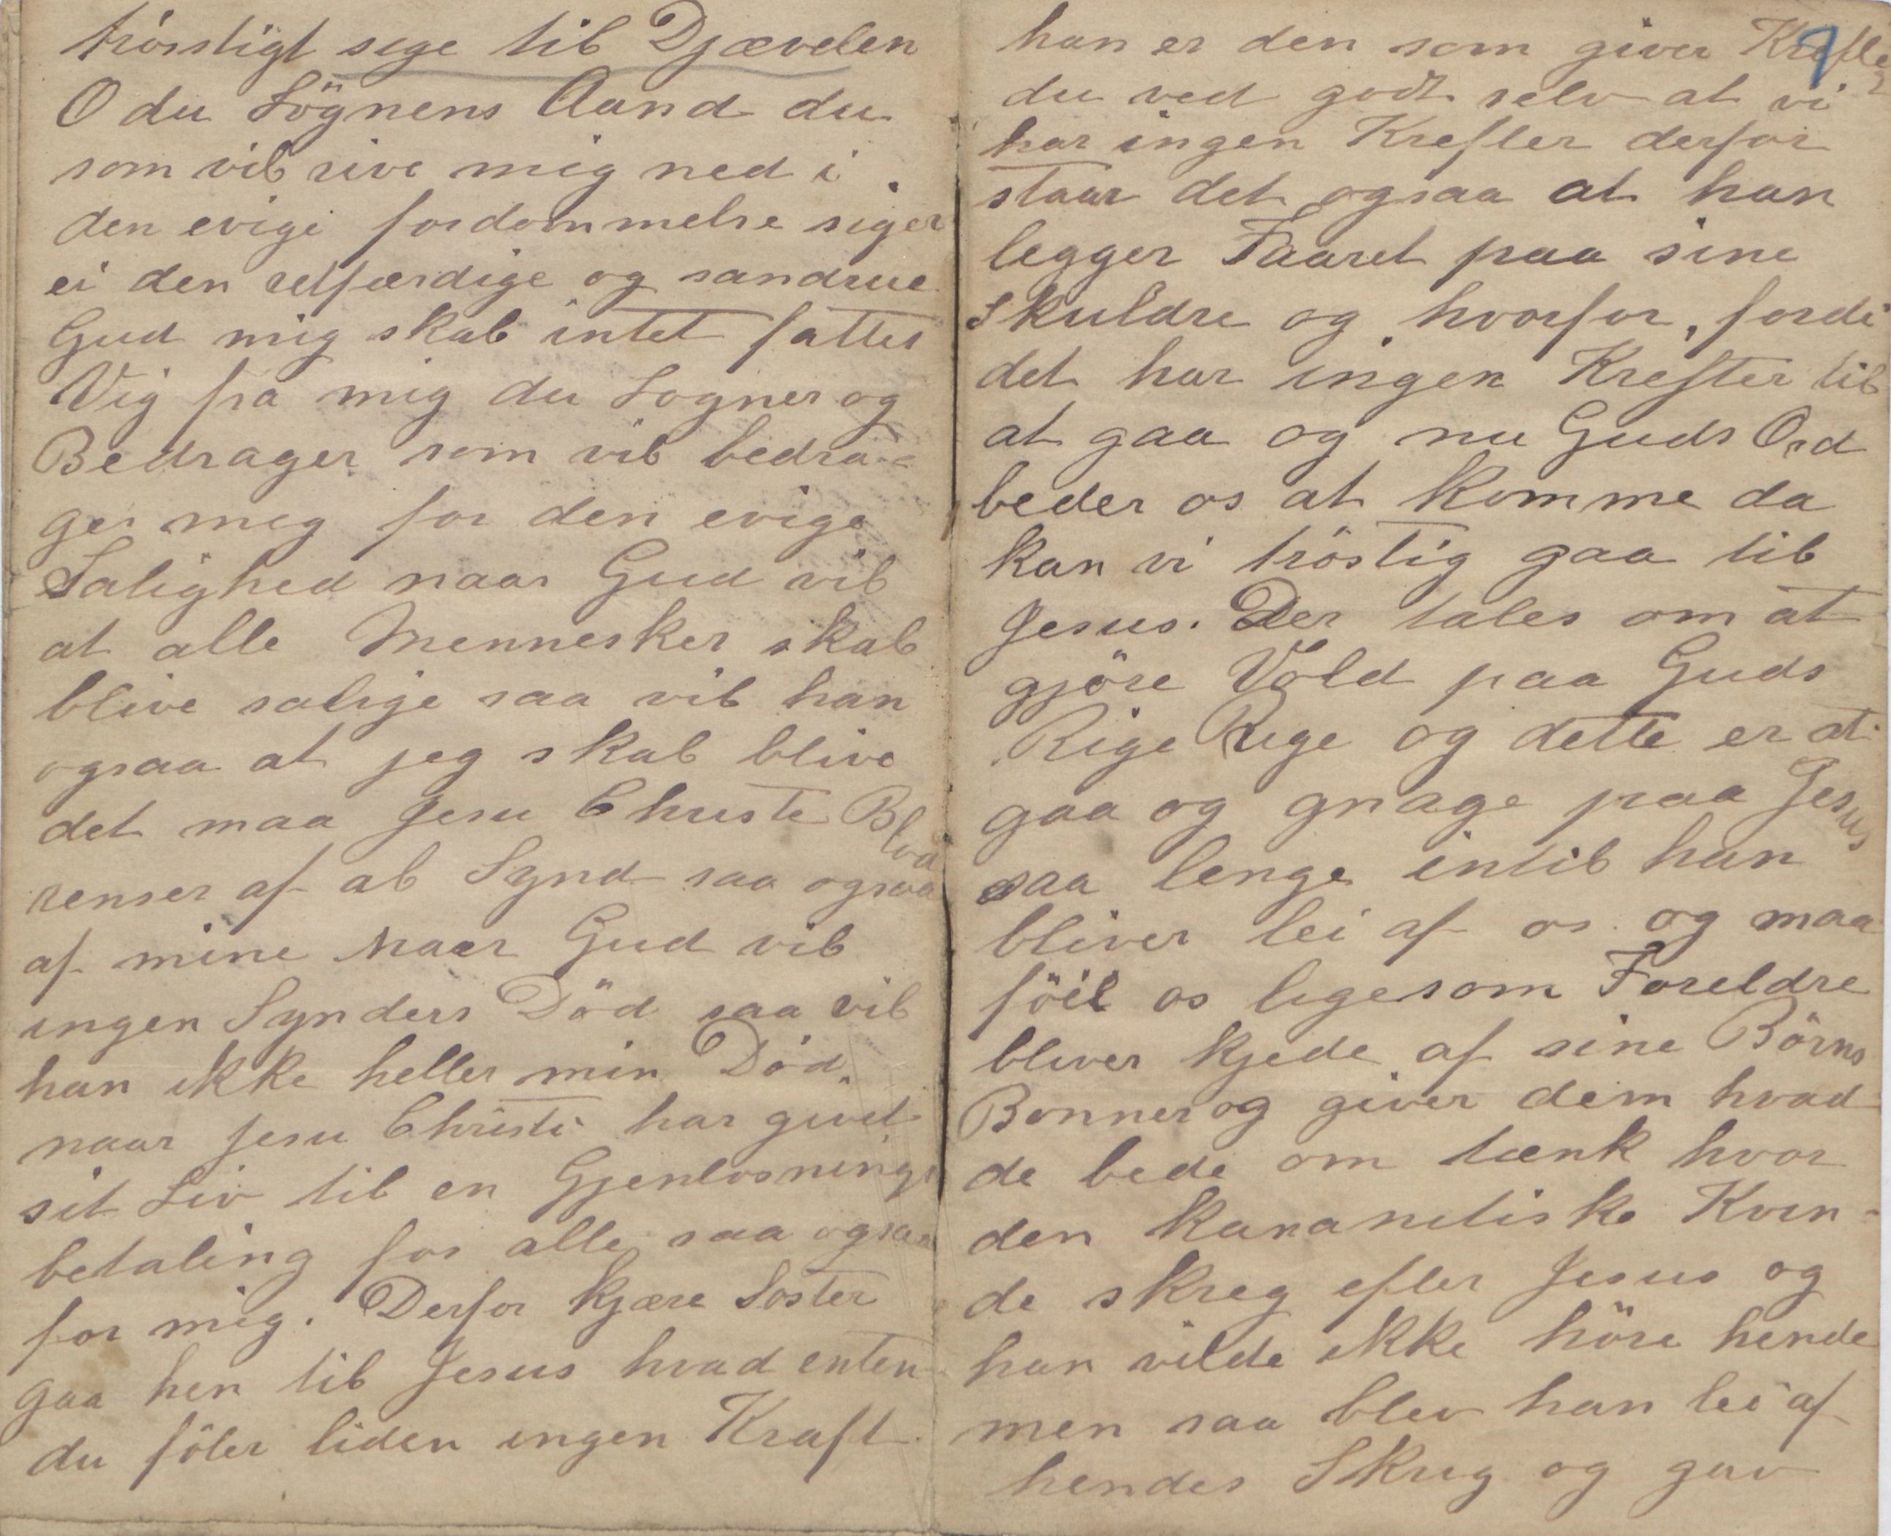 trösstigt sige til Djævelen
O du Lögnens Aand du
som vil rive mig ned i
den evige fordommelse siger
ei den retfærdige og sandrue
Gud mig skal intet fattes
Vig fra mig du Logner og
Bedrager som vil bedra-
ger mig for den evige
Salighed naar Gud vil
at alle Mennesker skal
blive salige saa vil han
ogsaa at jeg skal blive
det maa Jesu Christi Blod
renser af al Synd saa ogsaa
af mine Naar Gud vil
ingen Synders Död saa vil
han ikke heller min Död,
naar Jesu Christi har givet
sit Liv til en Gjenlosnings
betaling for alle saa ogsaa
for mig. Derfor kjære Soster
gaa hen til Jesus hvad enten
du föler liden ingen Kraft
han er den som giver Krefter
du ved godt selv at vi
har ingen Krefter derfor
staar det ogsaa at han
legger Faaret paa sine
Skuldre og hvorfor, fordi
det har ingen Krefter til
at gaa og nu Guds Ord
beder os at komme da
kan vi tröstig gaa til
Jesus. Der tales om at
gjöre Vold paa Guds
Rige Rige og dette er at
gaa og gnage paa Jesus
saa lenge intil han
bliver lei af os og maa
föie os ligesom Foreldre
bliver kjede af sine Börns
Bonner og giver dem hvad
de bede om tænk hvor
den kananitiske Kvin-
de skreg efter Jesus og
han vilde ikke höre hende
men saa blev han lei af
hendes Skrig og gav